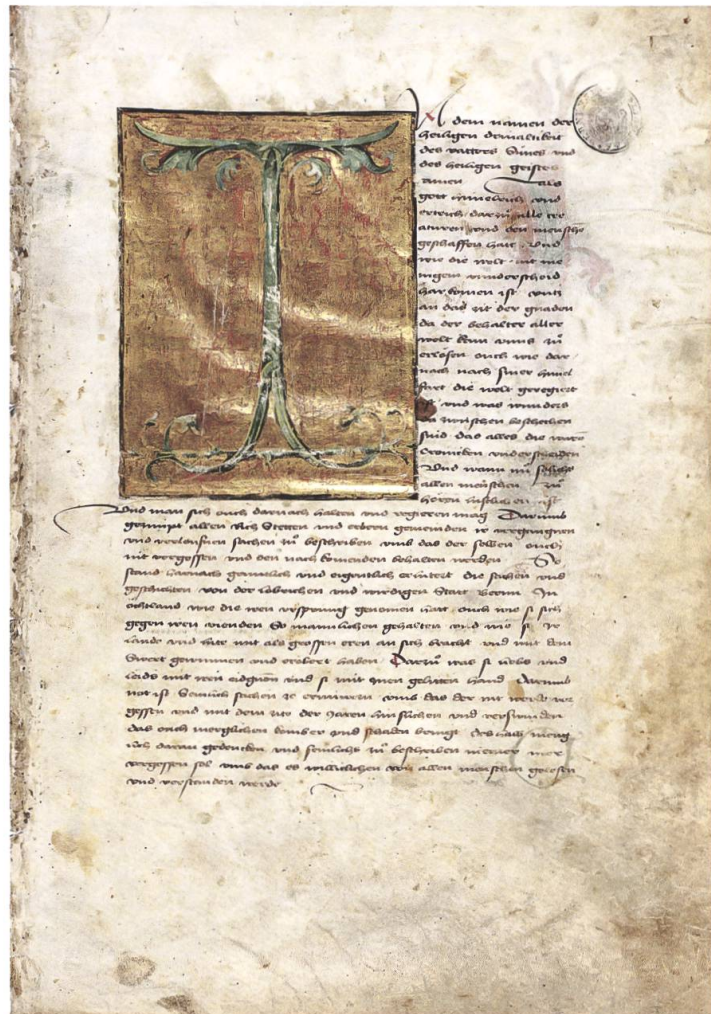 In dem namen der
heiligen drivaltikeit
des vattres Sunes vnd
des heiligen geistes
amen Als
gott himelrich vnd
ertrich dar zů alle cre
aturen vnd den mensche
geschaffen hatt. Vnd
wie die welt mit me
nigem vnderscheid
har komen ist vntz
an das zit der gnaden
da der behalter aller
welt kam vnns zů
erlösen ouch wie dar
nach nach siner himel
fart die welt geregiert
ist vnd was wunders
den mönschen beschechen
sind das alles die waren
Croniken vnderscheiden
Vnd wann nů söliche
allen mönschen zů
hören lustlichen ist
Vnd man sich ouch darnach halten vnd regieren mag Darumb
gezimpt allen Rich Stetten vnd erbern gemeinden ir vergangnen
vnd verlouffnen sachen zů beschriben vmb das der sölben ouch
nit vergessen vnd den nach komenden behalten werden So
stand harnach gemeinlich vnd eigentlich erlütert die sachen vnd
geschichten von der loblichen vnd wirdigen Statt Bernn In
öchtland wie die iren vrsprung genomen hatt ouch wie si sich
gegen iren vienden So manlichen gehalten vnd wie si ir
lande vnd lüte mit als grossen eren an sich bracht vnd mit dem
Swert gewunnen vnd erobert haben Darzů was si liebs vnd
leids mit iren eidgnon vnd si mit inen gelitten hand Darumb
not ist Semlich sachen ze ernüwern vmb das der nit werde ver
gessen vnd mit dem zite der Jaren hin slichen vnd verswinden
das ouch merglichen kumber vnd schaden bringt des nach meng
lich daran gedencken vnd semlichs zů beschriben niemer mer
vergessen sol vmb das es williclichen von allen mönschen gelesen
vnd verstanden werde